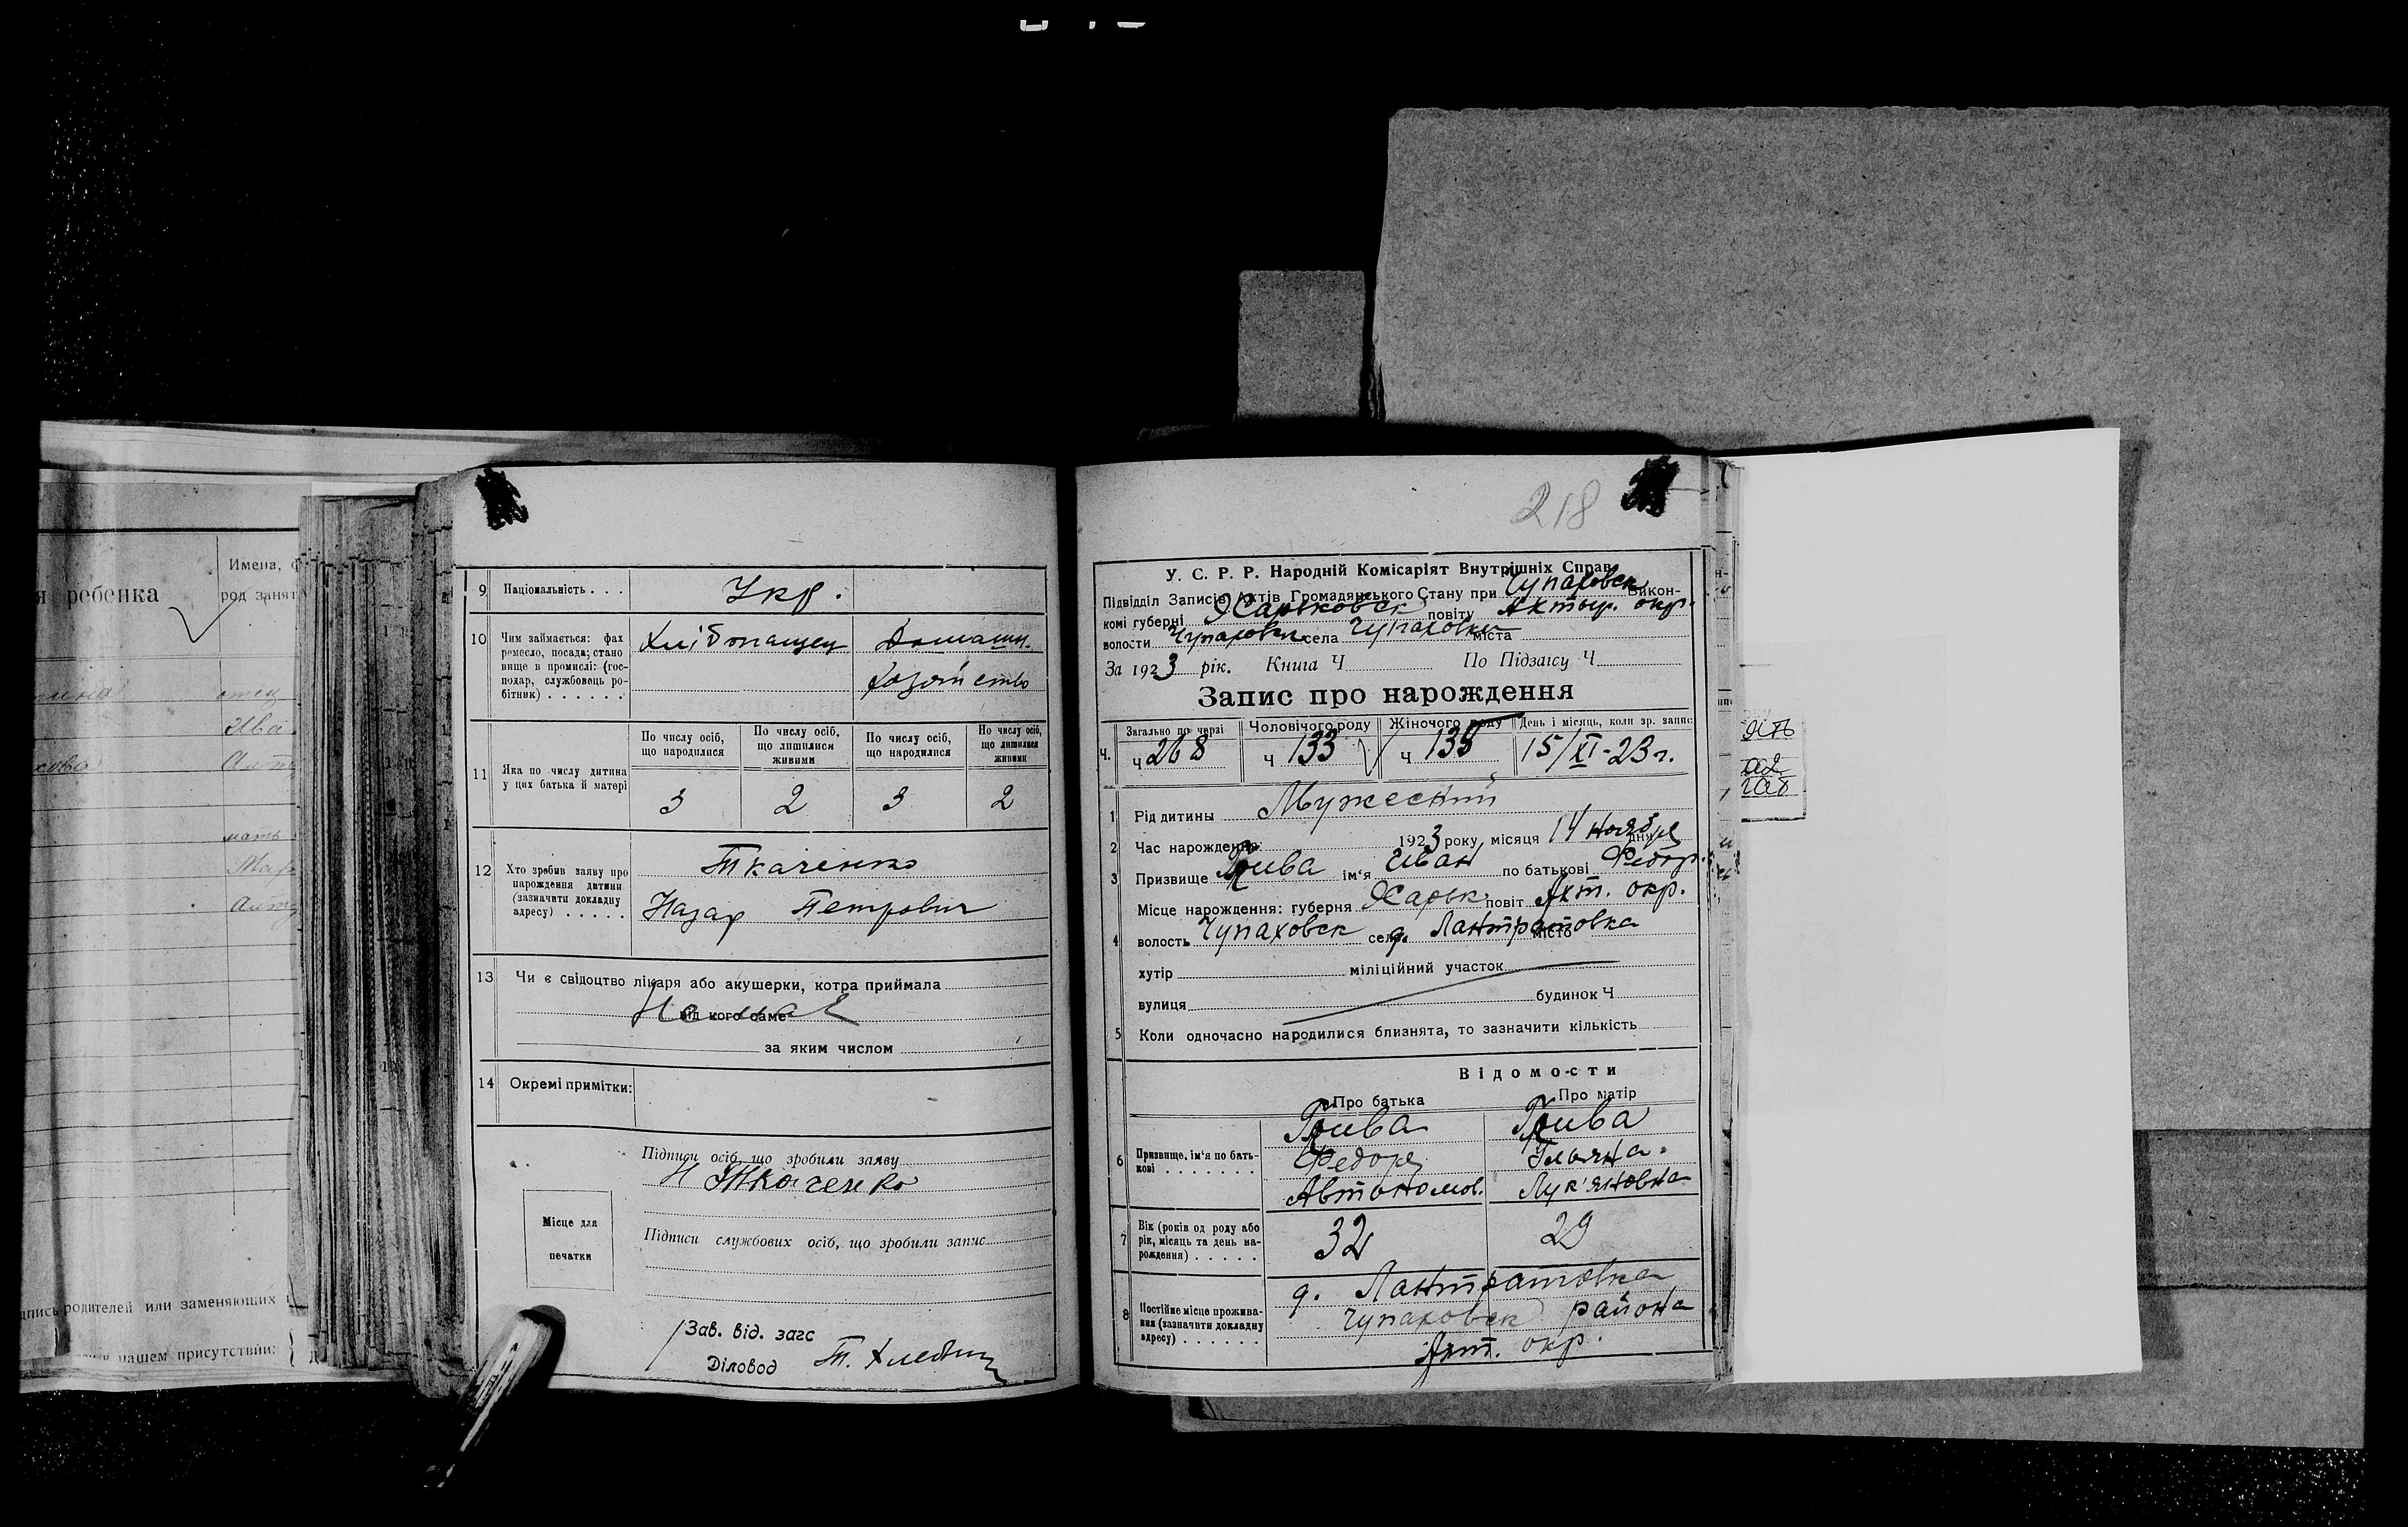 я ребенка
Имена, ф
род занят
отец
Ива
мать
дпись родителей или заменяющих
в нашем присутствии:
9 Національність . . . Укр.
10 Чим займається: фах ремесло, посада; становище в промислі: (господар, службовець робітник) . . . . . .
Хлібопашец Домашн.
хозяйство
11 Яка по числу дитина у цих батька й матері
По числу осіб, що народилися По числу осіб, що лишилися живими По числу осіб, що народилися По числу осіб, що лишилися живими
3 2 3 2
12 Хто зробив заяву про народження дитини (зазначити докладну адресу) . . . . .
Ткаченко
Назар Петрович
13 Чи є свідоцтво лікаря або акушерки, котра приймала
Немає
від кого саме
за яким числом
14 Окремі примітки:
Підписи осіб, що зробили заяву
Н Ткаченко
Місце для
печатки
Підписи службових осіб, що зробили запис
Зав. від. загс
Діловод Т.
218
У. С. Р. Р. Народній Комісаріят Внутрішніх Справ
Підвідділ Записів Актів Громадянського Стану при Чупаховск Викон-
комі губерні Харьковск повіту Ахтыр. окр.
волости Чупаховки села Чупаховки міста
За 1923 рік. Книга Ч По Підзагсу Ч
Запис про нарождення
Ч. Загально по черзі Чоловічого роду Жіночого роду День і місяць, коли зр. запис
Ч 268 Ч 133 Ч 135 15/XI-23 г.
1 Рід дитини Мужеский
2 Час нарождення: 1923 року місяця 14 ноября дня
3 Призвище Грива ім'я Иван по батькові Федор.
4 Місце нарождення: губерня Харьк. повіт Ахт. окр.
волость Чупаховск село д. Лантратовка місто
хутір міліційний участок
вулиця будинок Ч
5 Коли одночасно народилися близнята, то зазначити кількість
Відомости
Про батька Про матір
6 Призвище, ім'я по батькові . . . . . . .
Грива Грива
Федор Ульяна
Автономов. Лук'яновна
7 Вік (років од роду або рік, місяць та день народження) . . . . .
32 29
8 Постійне місце проживання (зазначити докладну адресу) . . . . . .
д. Лантратовка
Чупаховск района
Ахт. окр.